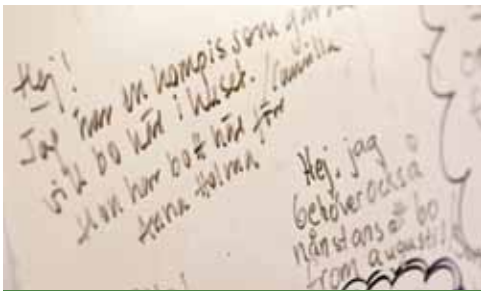 Hej!
Jag har en kompis som gärna
vill bo här i huset. /Camilla
Hon har bott här förr
Hej. jag
behöver också
nånstans att bo
from augusti!